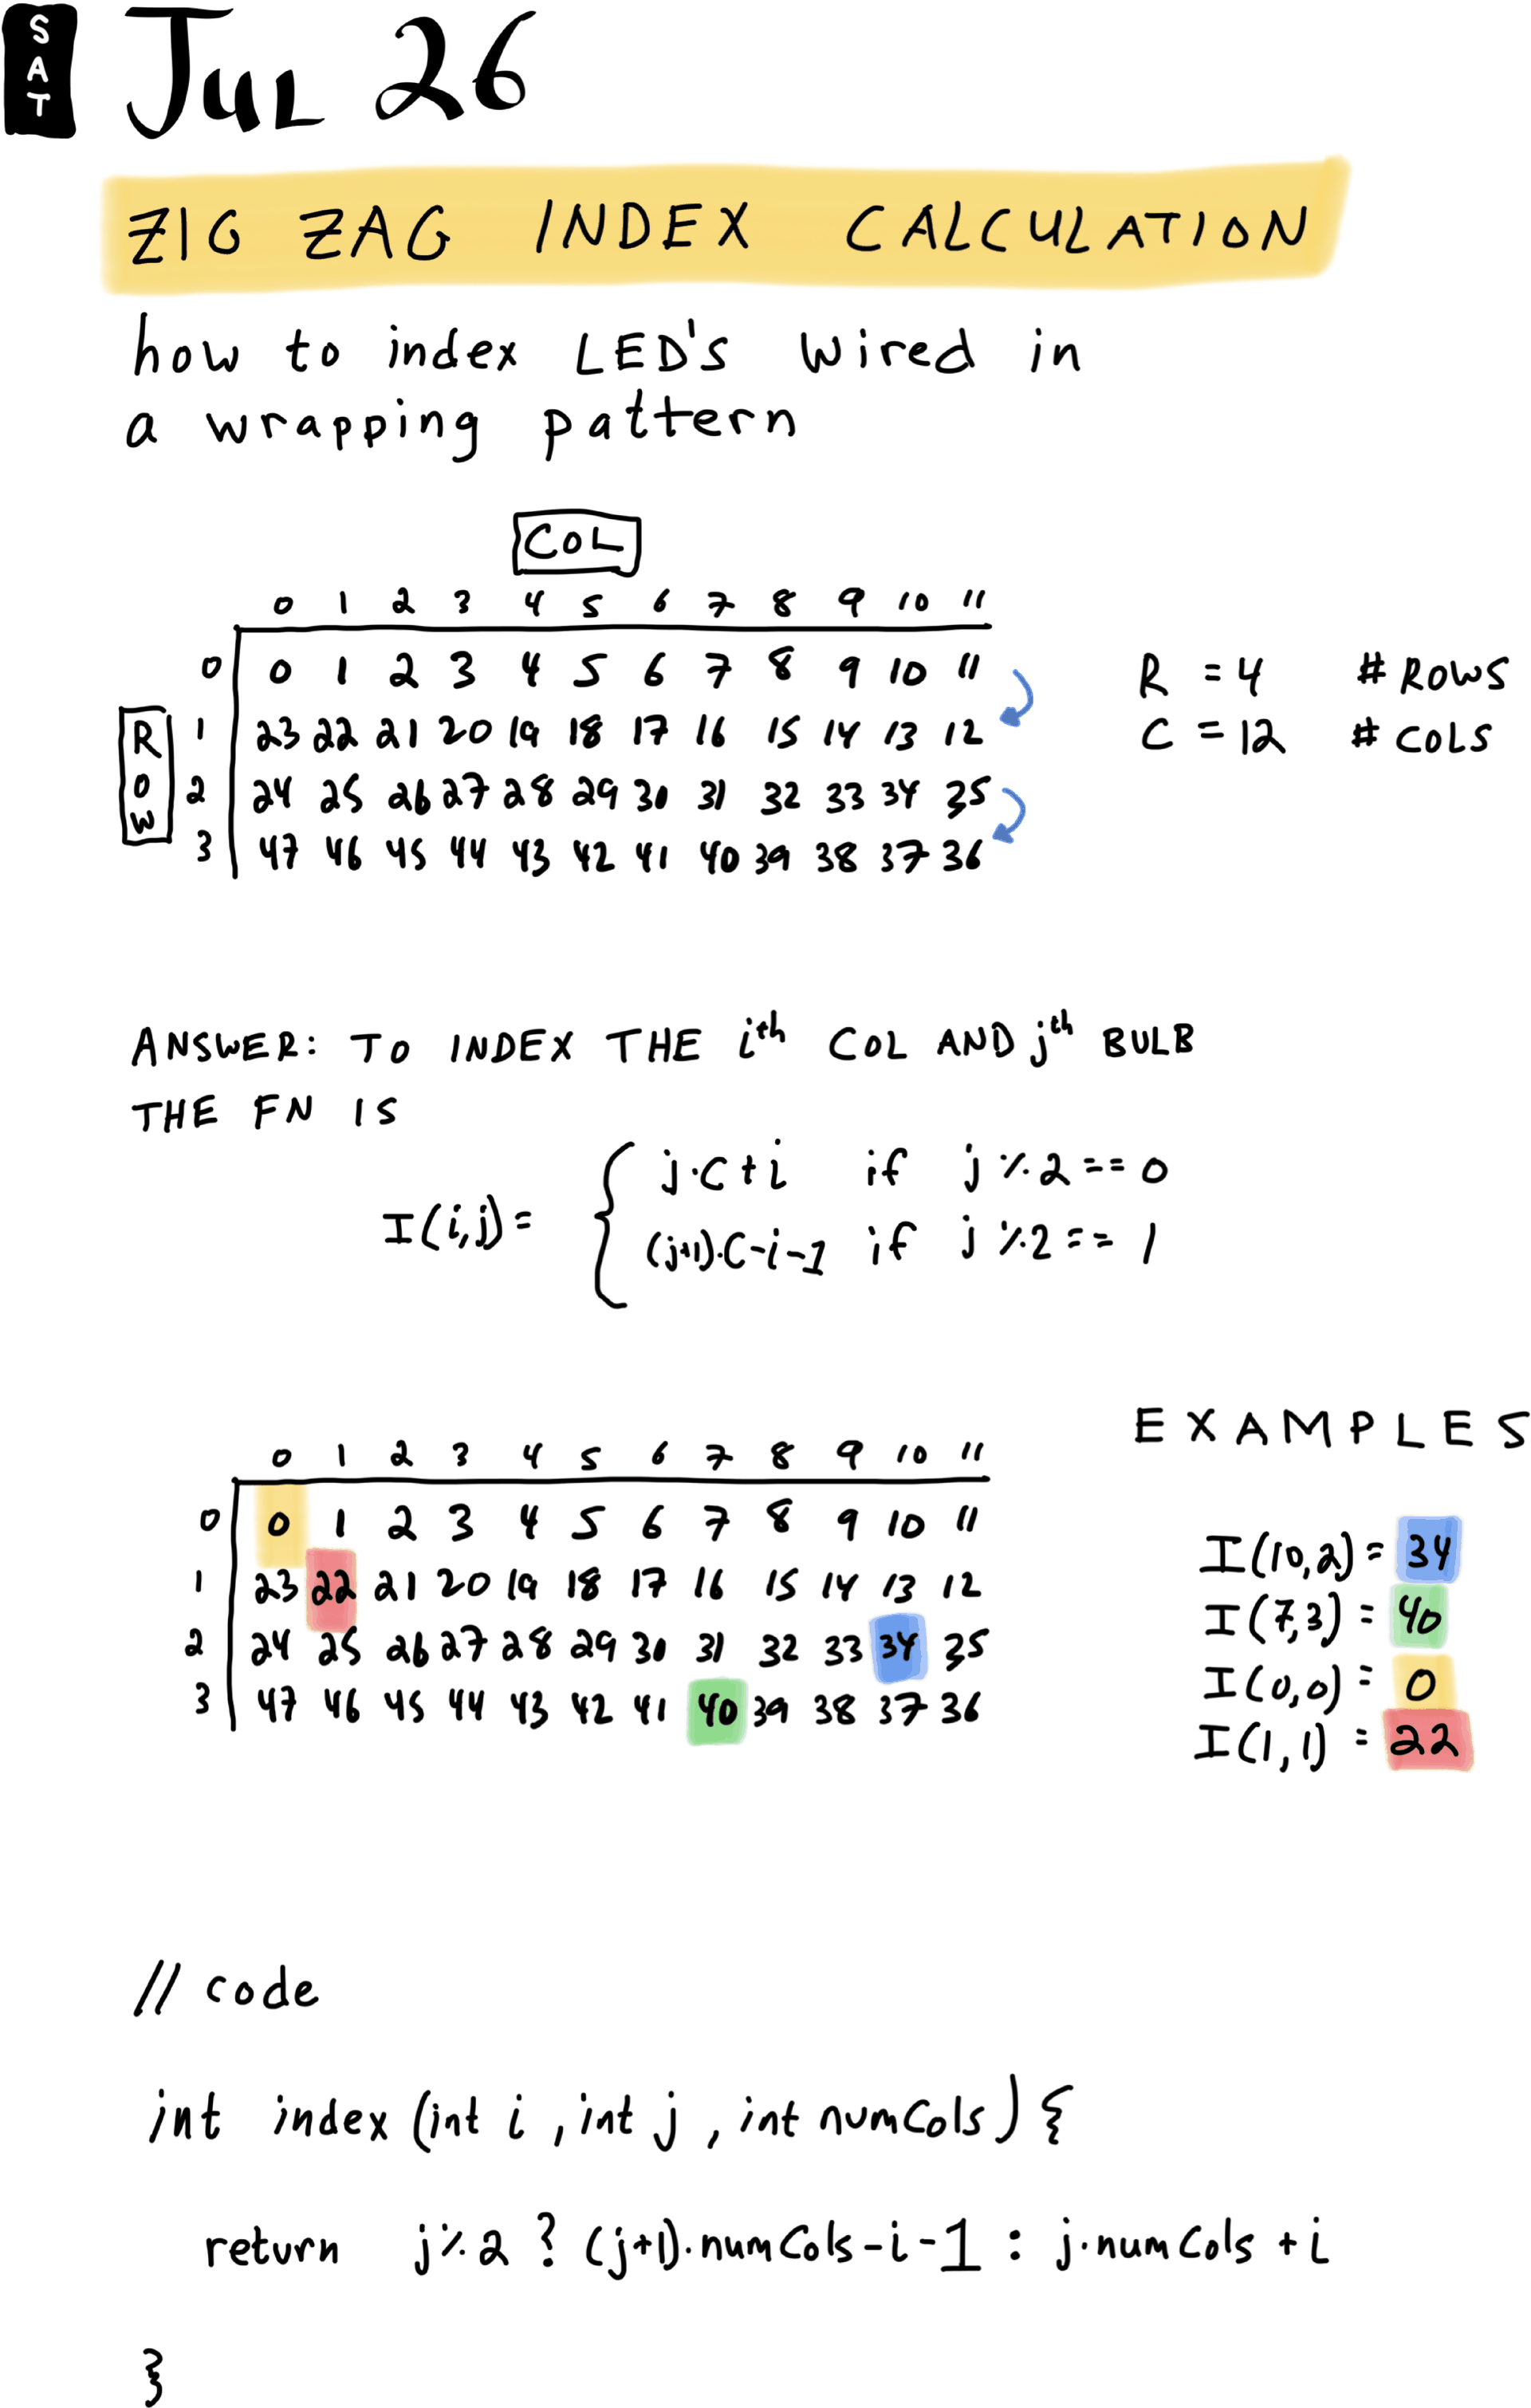 SAT
JUL 26
ZIG ZAG INDEX CALCULATION
how to index LED's wired in
a wrapping pattern
COL
0 1 2 3 4 5 6 7 8 9 10 11
0 0 1 2 3 4 5 6 7 8 9 10 11
R = 4 # ROWS
ROW
1 23 22 21 20 19 18 17 16 15 14 13 12
C = 12 # COLS
2 24 25 26 27 28 29 30 31 32 33 34 35
3 47 46 45 44 43 42 41 40 39 38 37 36
ANSWER: TO INDEX THE i^th COL AND j^th BULB
THE FN IS
I(i,j) = {
j·C+i if j % 2 == 0
(j+1)·C-i-1 if j % 2 == 1
EXAMPLES
0 1 2 3 4 5 6 7 8 9 10 11
0 0 1 2 3 4 5 6 7 8 9 10 11
1 23 22 21 20 19 18 17 16 15 14 13 12
2 24 25 26 27 28 29 30 31 32 33 34 35
3 47 46 45 44 43 42 41 40 39 38 37 36
I(10,2) = 34
I(7,3) = 40
I(0,0) = 0
I(1,1) = 22
// code
int index (int i, int j, int numCols) {
return j % 2 ? (j+1)·numCols-i-1 : j·numCols + i
}